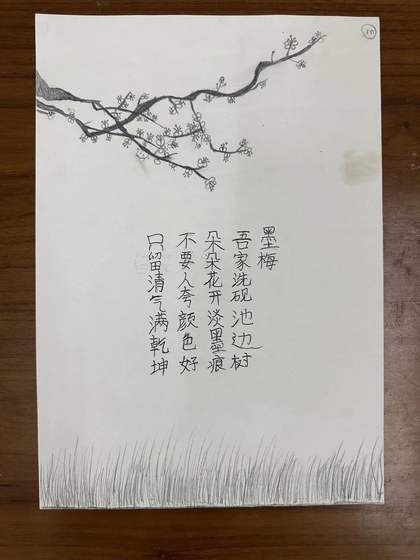 墨梅
吾家洗砚池边树
朵朵花开淡墨痕
不要人夸颜色好
只留清气满乾坤